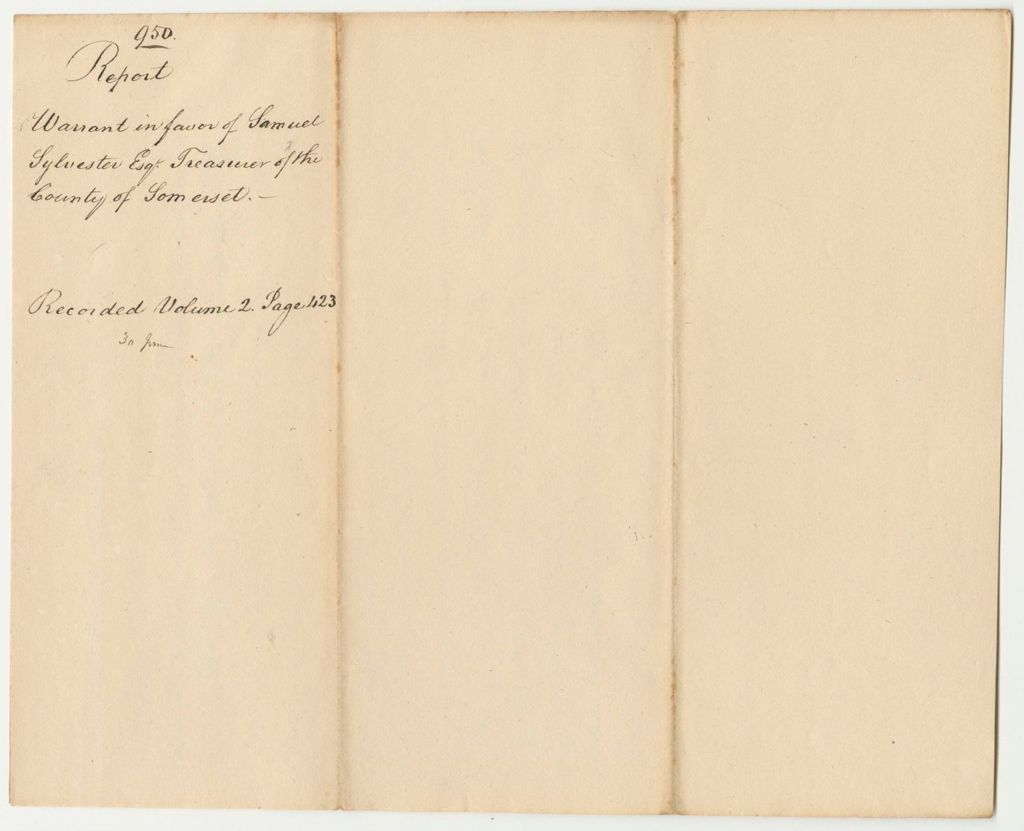 950.
Report
Warrant in favor of Samuel
Sylvester Esqr. Treasurer of the
County of Somerset. —
Recorded Volume 2. Page 423